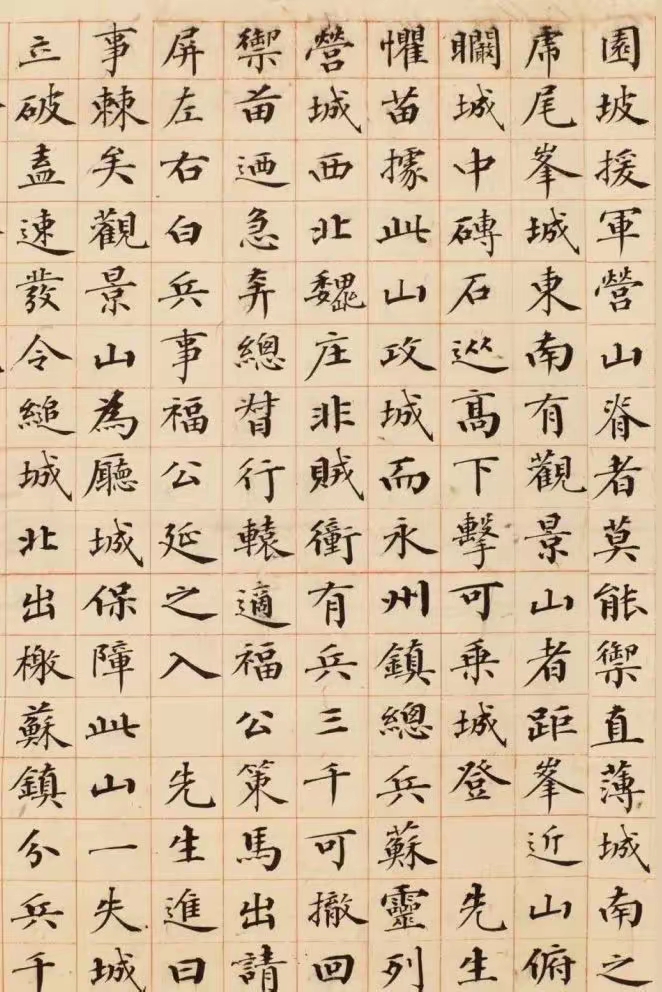 園坡援軍營山脊者莫能禦直薄城南之
虎尾峯城東南有觀景山者距峯近山俯
瞷城中磚石巡高下擊可乗城登先生
懼苗據此山攻城而永州鎮總兵蘇靈列
營城西北魏庄非賊衝有兵三千可撤回
禦苗迺急奔總督行轅適福公策馬出請
屏左右白兵事福公延之入先生進曰
事棘矣觀景山為廳城保障此山一失城
立破盍速發令縋城北出檄蘇鎮分兵千